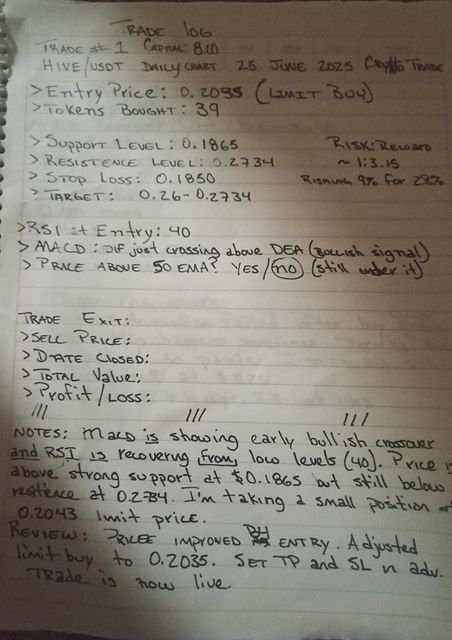 TRADE LOG
TRADE # 1 CAPITAL: 8.00
HIVE/USDT DAILY CHART 25 JUNE 2025 CRYPTO TRADE
> ENTRY PRICE: 0.2035 (LIMIT BUY)
> TOKENS BOUGHT: 39
> SUPPORT LEVEL: 0.1865
> RESISTENCE LEVEL: 0.2734
> STOP LOSS: 0.1850
> TARGET: 0.26-0.2734
RISK:REWARD
~ 1:3.15
RISKING 9% for 28%
> RSI at Entry: 40
> MACD: DIF just crossing above DEA (Bullish signal)
> PRICE ABOVE 50 EMA? YES/no (still under it)
TRADE EXIT:
> SELL PRICE:
> DATE CLOSED:
> TOTAL VALUE:
> Profit/LOSS:
/// /// ///
NOTES: MACD is showing early bullish crossover
and RSI is recovering from low levels (40). Price is
above strong support at $0.1865 but still below
restence at 0.2734. I'm taking a small position at
0.2043 limit price.
REVIEW: PRICE IMPROVED BY ENTRY. Adjusted
limit buy to 0.2035. SET TP and SL in adv.
TRADE is now live.